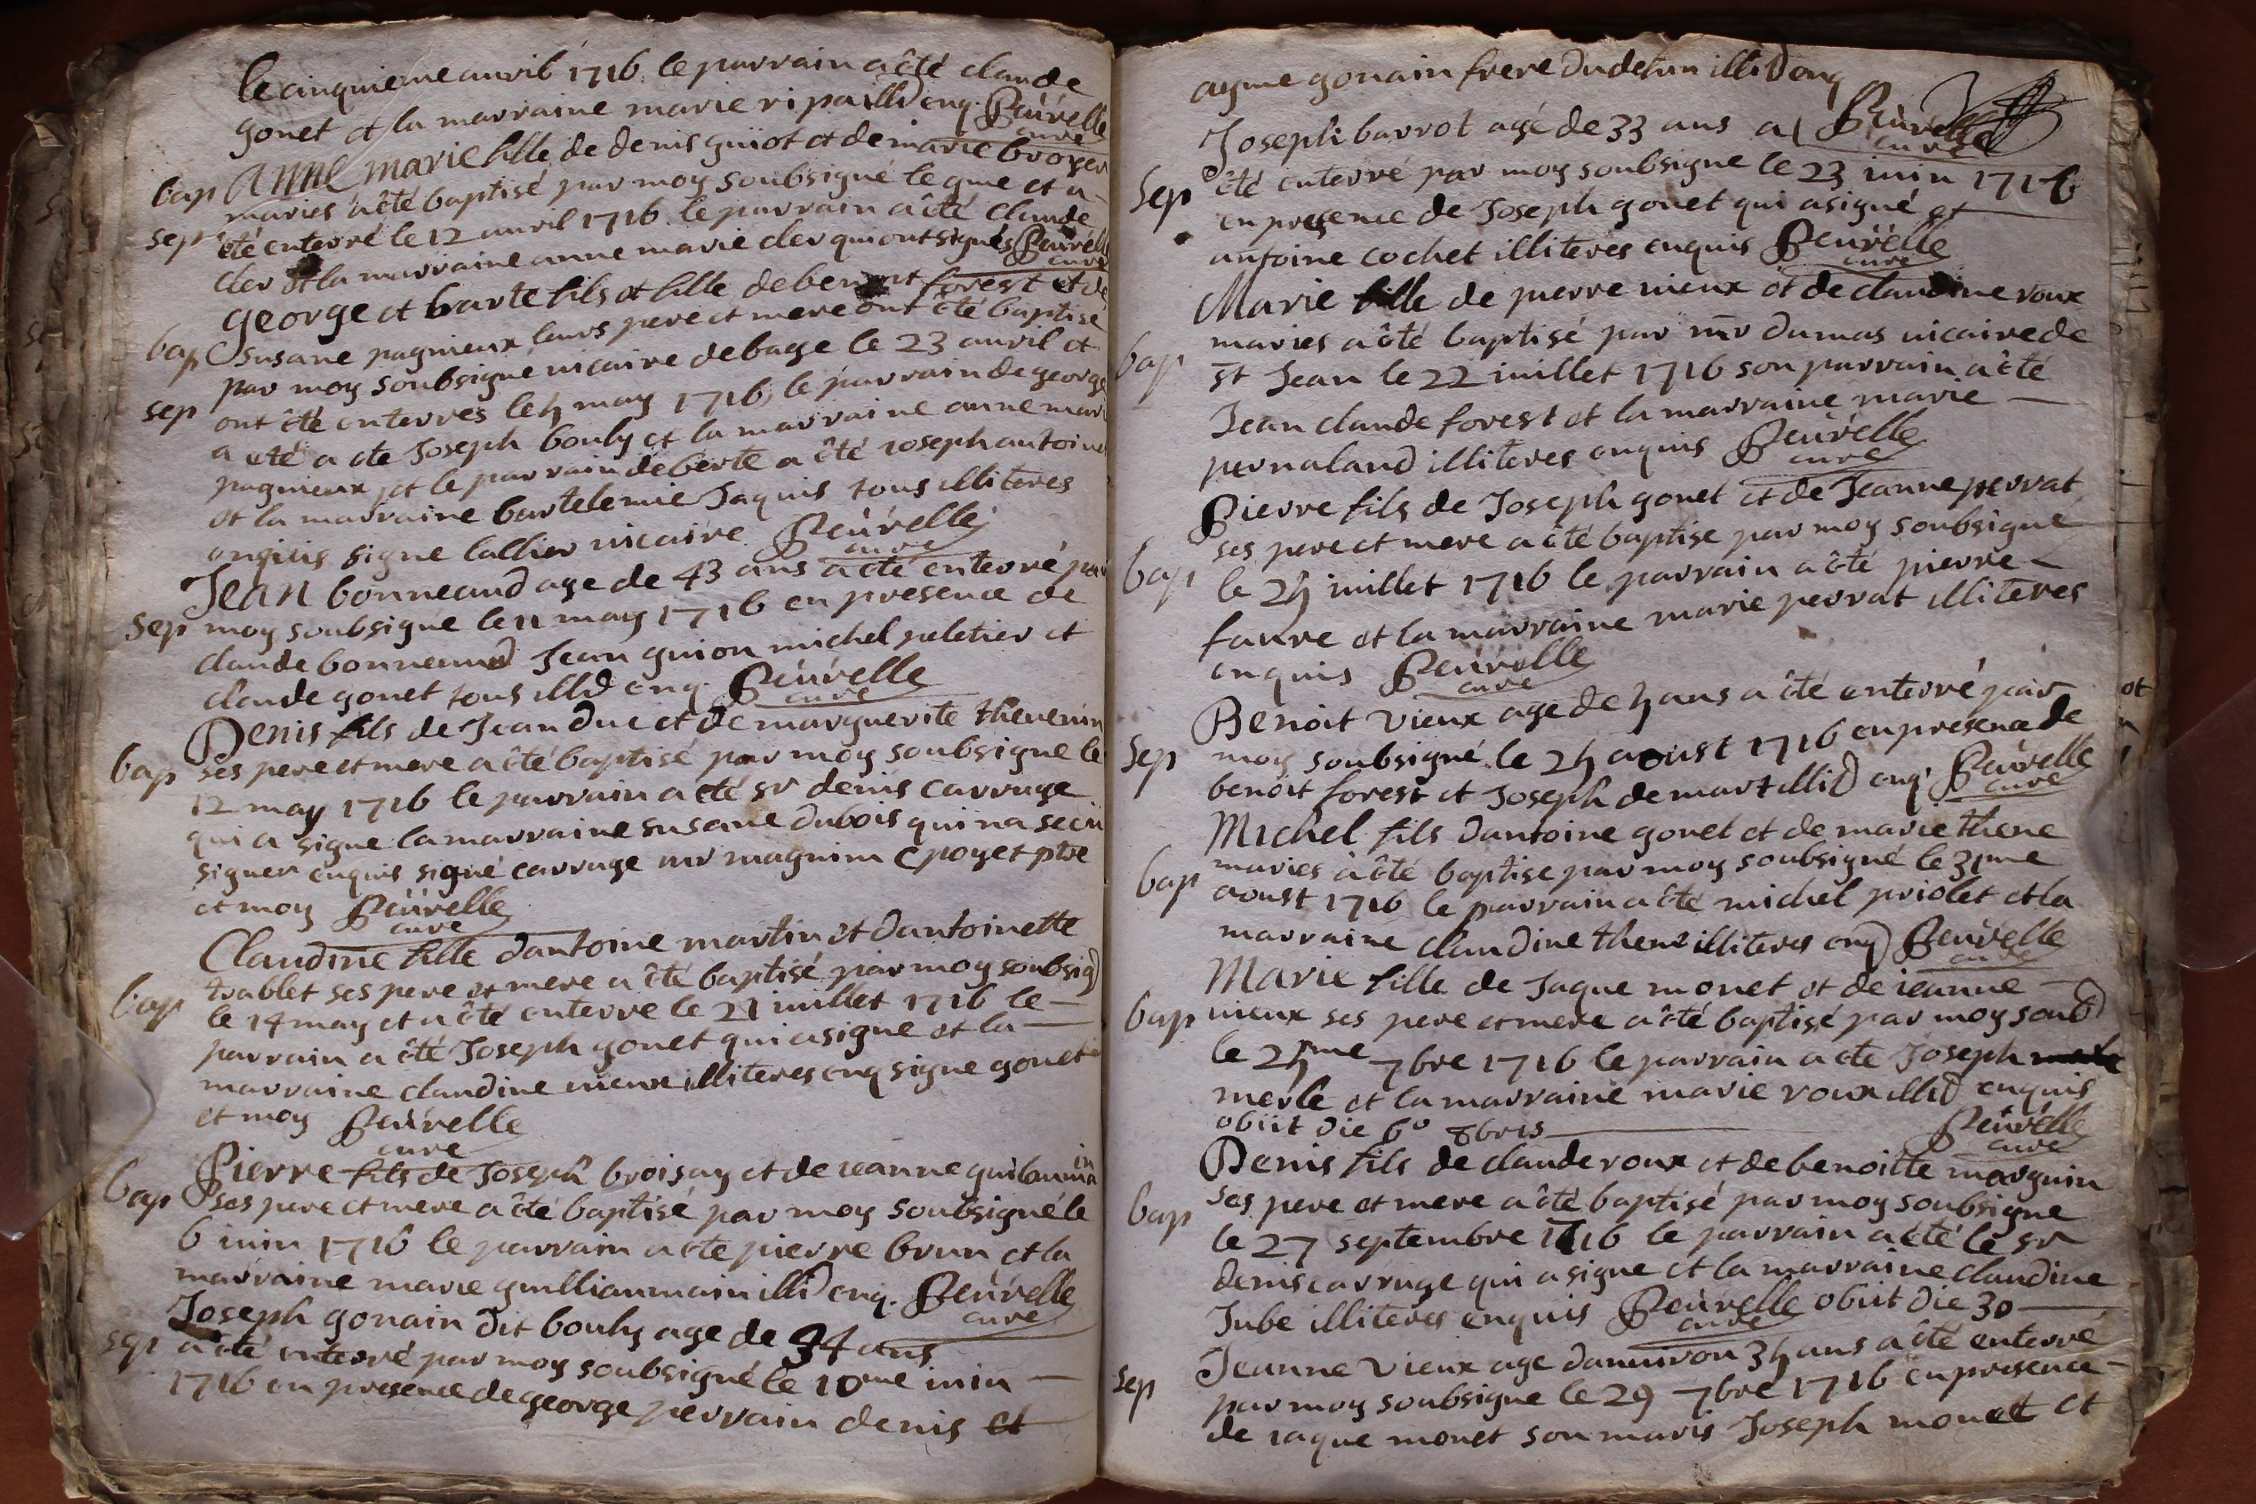 le cinquieme avril 1716 le parrain a êté claude
gonet et la marraine marie ripa illd enq. Beúvelle
curé
bap Anne marie fille de denis guïot et de marie broyer
maries a êté baptisé par moy soubsigné le 9me et a
sep êté enterré le 12 avril 1716 le parrain a êté claude
cler et la marraine anne marie cler qui ont signés Beuvelle
curé
george et barte fils et fille de benoit forest et de
bap susane pagnieux leurs pere et mere ont êté baptisé
par moy soubsigné vicaire de bage le 23 avril et
sep ont êté enterres le 5 may 1716 le parrain de george
a eté a ete Joseph bouly et la marraine anne mari
pagnieux et le parrain de berte a êté ioseph antoine
et la marraine bartelemie Jaquis tous illiteres
enquis signe lallier vicaire Beúvelle
curé
Jean bonneaud age de 43 ans a êté enterré par
sep moy soubsigné le 11 may 1716 en presence de
claude bonneaud Jean guion michel peletier et
claude gonet tous illd enq. Beúvelle
curé
Denis fils de Jean duc et de marguerite thevenin
bap ses pere et mere a êté baptisé par moy soubsigne le
12 may 1716 le parrain a eté sr denis carruge
qui a signe la marraine susane dubois qui na sceu
signer enquis signé carruge mr magnim Cpoyet ptre
et moy Beúvelle
curé
Claudine fille dantoine martin et dantoinette
trablet ses pere et mere a êté baptisé par moy soubsigd
bap le 14 may et a êté enterre le 21 iuillet 1716 le
parrain a êté Joseph gonet qui a signe et la
marraine claudine vieux illiteres enq signe gonet
et moy Beuvelle
curé
Pierre fils de Joseph broisay et de ieanne guilaumin
bap ses pere et mere a êté baptisé par moy soubsigné le
6 iuin 1716 le parrain a ete pierre brun et la
marraine marie guillianmain illd enq. Beúvelle
curé
Joseph gonain dit bouly age de 34 ans
sep a êté enterré par moy soubsigné le 10me iuin
1716 en presence de george perrain denis et
ayme gonain frere du defun illd enq
Beúvelle
curé
Joseph barrot agé de 33 ans a
Sep êté enterré par moy soubsigne le 23 iuin 1716
en presence de Joseph gonet qui a signé et
antoine cochet illiteres enquis Beúvelle
curé
Marie fille de pierre vieux et de claudine roux
maries a êté baptisé par mr dumas vicaire de
bap st Jean le 22 iuillet 1716 son parrain a êté
Jean claude forest et la marraine marie
pernaland illiteres enquis Beuvelle
curé
Pierre fils de Joseph gonet et de Jeanne perrat
ses pere et mere a êté baptise par moy soubsigne
bap le 25 iuillet 1716 le parrain a êté pierre
faure et la marraine marie perrat illiteres
enquis Beúvelle
curé
Benoit vieux age de 5 ans a êté enterré par
Sep moy soubsigné le 25 aoust 1716 en presence de
benoit forest et Joseph demart illid enq. Beuvelle
curé
Michel fils dantoine gonet et de marie thene
bap maries a êté baptise par moy soubsigné le 31me
aoust 1716 le parrain a êté michel priolet et la
marraine claudine thene illiteres enq Beuvelle
curé
Marie fille de Jaque monet et de ieanne
bap vieux ses pere et mere a êté baptisé par moy soubd
le 25me 7bre 1716 le parrain a ete Joseph
merle et la marraine marie roux illd enquis
obiit die 6o 8bris Beúvelle
curé
Denis fils de claude roux et de benoitte marguin
bap ses pere et mere a êté baptisé par moy soubsigne
le 27 septembre 1716 le parrain a eté le sr
denis carruge qui a signe et la marraine claudine
Jube illiteres enquis Beúvelle obiit die 30
curé
Jeanne vieux age danuiron 35 ans a êté enterré
Sep par moy soubsigne le 29 7bre 1716 en presence
de iaque monet son maris Joseph monet et